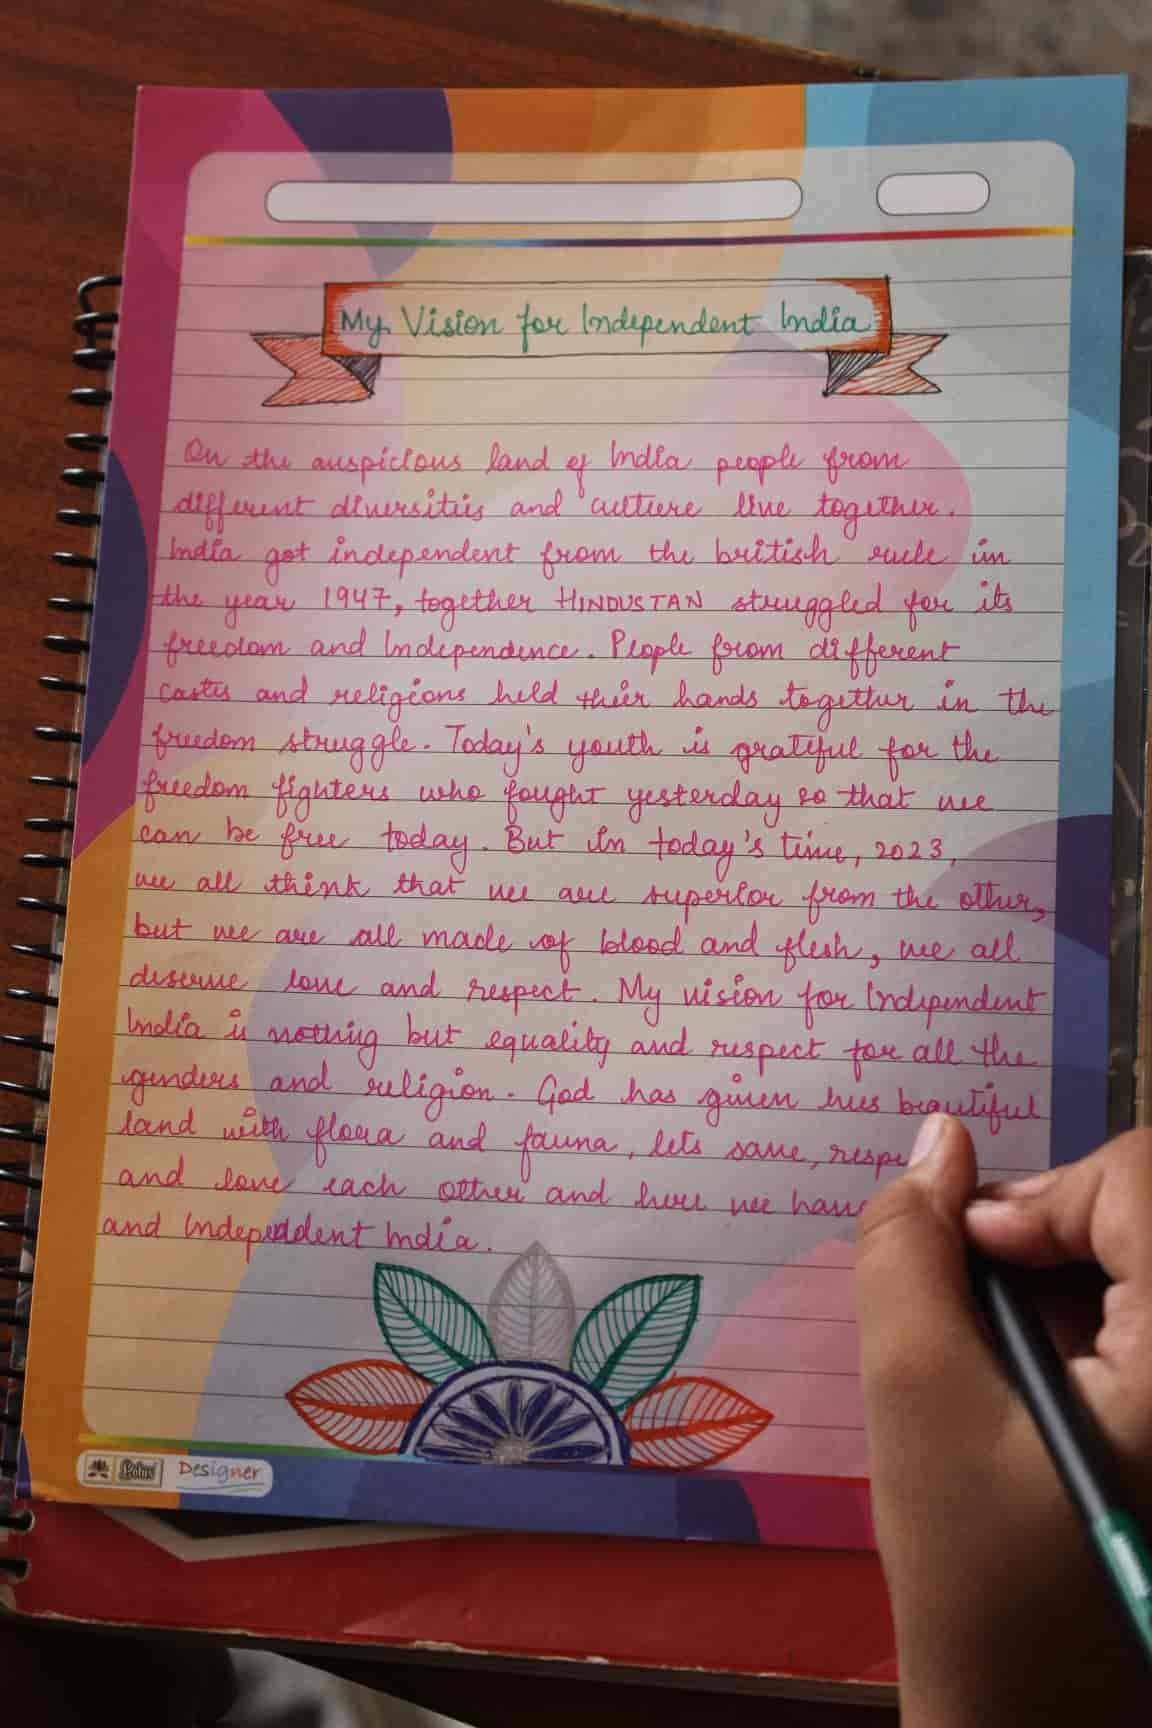 My Vision for Independent India
On the auspicious land of India people from
different diversities and culture live together.
India got independent from the british rule in
the year 1947, together HINDUSTAN struggled for its
freedom and Independence. People from different
castes and religions held their hands together in the
freedom struggle. Today's youth is grateful for the
freedom fighters who fought yesterday so that we
can be free today. But in today's time, 2023,
we all think that we are superior from the other,
but we are all made of blood and flesh, we all
deserve love and respect. My vision for Independent
India is nothing but equality and respect for all the
genders and religion. God has given hus beautiful
land with flora and fauna, lets save, respe
and love each other and here we have
and Independent India.
Lotus Designer